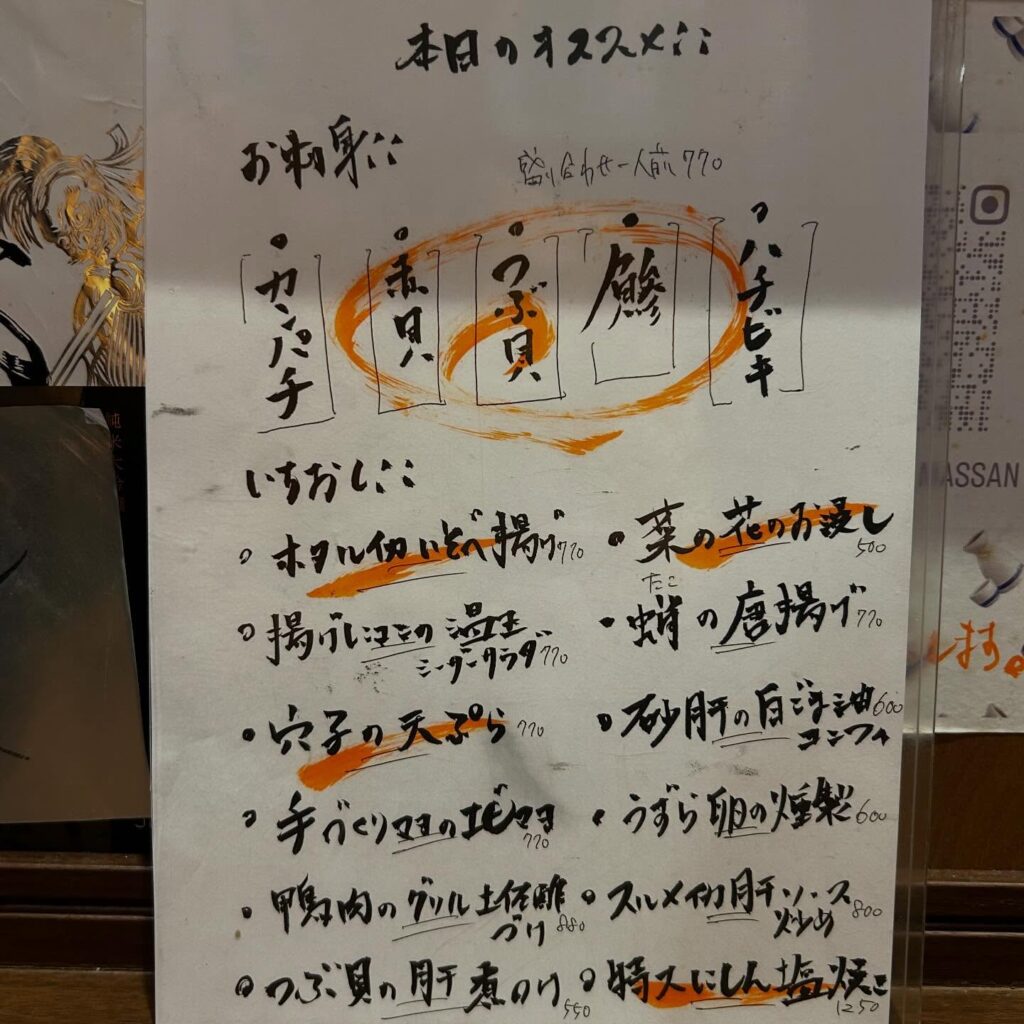 本日のオススメ::
お刺身::
盛り合わせ一人前770
・ハチビキ
・鯵
・つぶ貝
・赤貝
・カンパチ
いちおし::
・ホタルイカいそべ揚げ770
・菜の花のお浸し500
・揚げじゃこの温玉シーザーサラダ770
・蛸の唐揚げ770
たこ
・穴子の天ぷら770
・砂肝の白ごま油コンフィ600
・手づくりマヨのエビマヨ770
・うずら卵の燻製600
・鴨肉のグリル土佐酢づけ880
・スルメイカ肝ソース炒め800
・つぶ貝の肝煮のけ550
・特大にしん塩焼き1250
純米大吟醸
MASSAN
します。